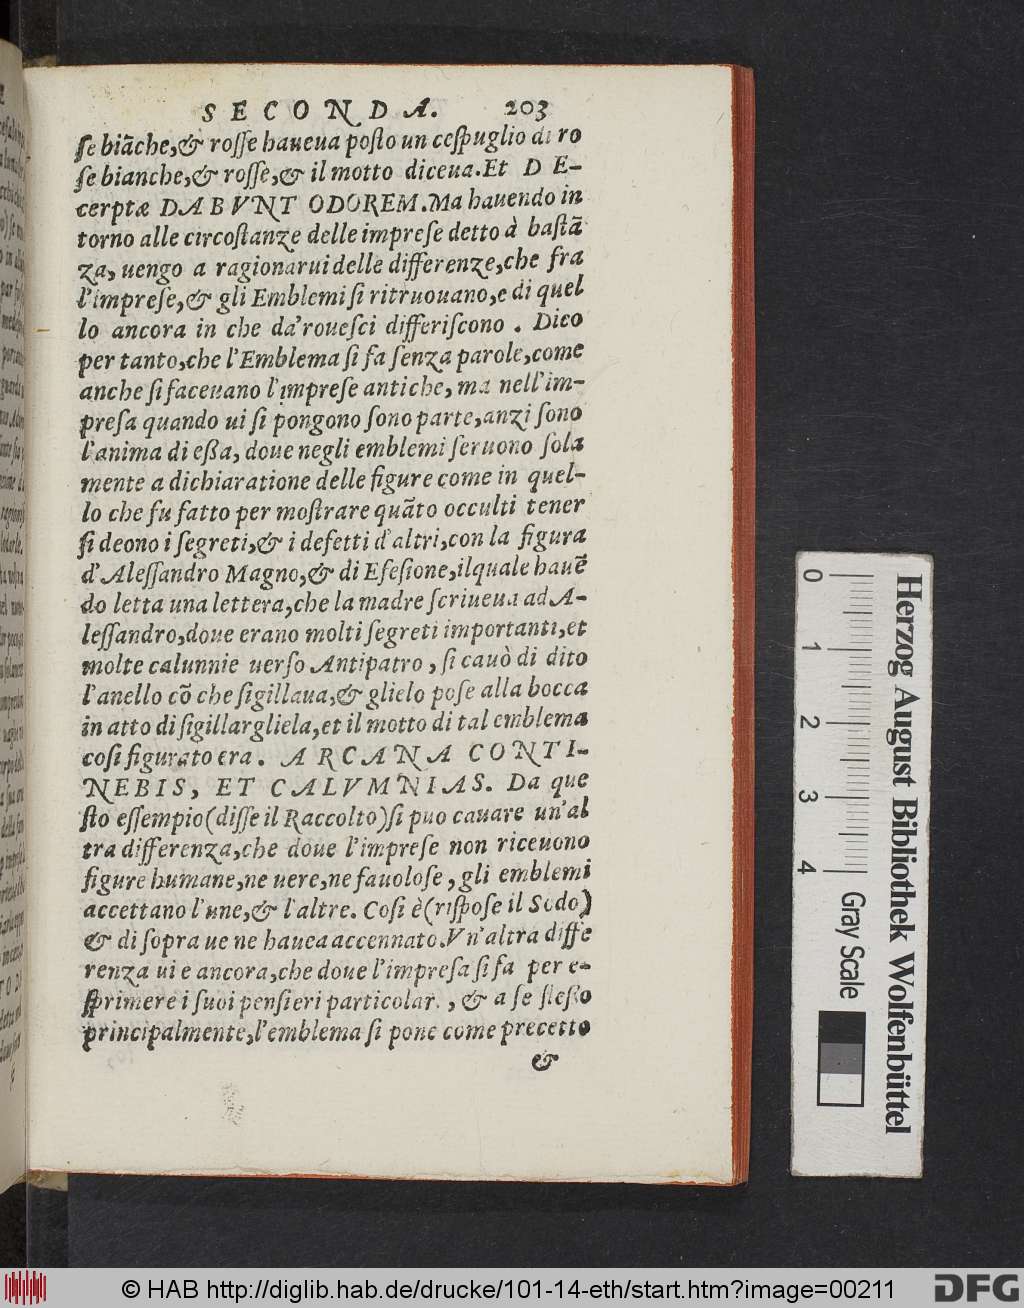 SECONDA. 203
ſe biãche,& roſſe haueua poſto un ceſpuglio di ro
ſe bianche,& roſſe,& il motto diceua.Et D E-
cerptæ DABVNT ODOREM.Ma hauendo in
torno alle circoſtanze delle impreſe detto à baſtã
za, uengo a ragionarui delle differenze,che fra
l'impreſe,& gli Emblemi ſi ritruouano,e di quel
lo ancora in che da'roueſci differiſcono . Dico
per tanto,che l'Emblema ſi fa ſenza parole,come
anche ſi faceuano l'impreſe antiche, ma nell'im-
preſa quando ui ſi pongono ſono parte,anzi ſono
l'anima di eßa, doue negli emblemi ſeruono ſola
mente a dichiaratione delle figure come in quel-
lo che fu fatto per moſtrare quãto occulti tener
ſi deono i ſegreti,& i defetti d'altri,con la figura
d'Aleſſandro Magno,& di Efeſione,ilquale hauẽ
do letta una lettera,che la madre ſcriueua ad A-
leſſandro,doue erano molti ſegreti importanti,et
molte calunnie uerſo Antipatro , ſi cauò di dito
l'anello cõ che ſigillaua,& glielo poſe alla bocca
in atto di ſigillargliela,et il motto di tal emblema
coſi figurato era. ARCANA CONTI-
NEBIS, ET CALVMNIAS. Da que
ſto eſſempio(diſſe il Raccolto)ſi puo cauare un'al
tra differenza,che doue l'impreſe non riceuono
figure humane,ne uere,ne fauoloſe , gli emblemi
accettano l'une,& l'altre. Coſi è(riſpoſe il Sodo)
& di ſopra ue ne hauea accennato.Vn'altra diffe
renza ui e ancora,che doue l'impreſa ſi fa per e-
ſprimere i ſuoi penſieri particolar. , & a ſe ſteſſo
principalmente,l'emblema ſi pone come precetto
&
0 1 2 3 4
Gray Scale
Herzog August Bibliothek Wolfenbüttel
© HAB http://diglib.hab.de/drucke/101-14-eth/start.htm?image=00211
DFG